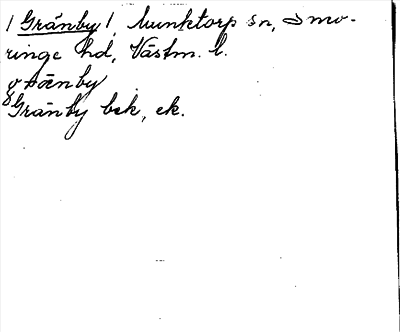 / Gränby /, Munktorp sn, Snro-
ringe hd, Västm. l.
Gränby bek, ek.